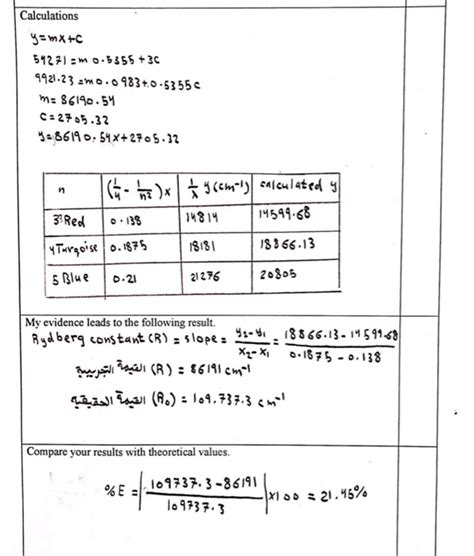 Calculations
y=mx+c
54271=m 0.5355+3c
9921.23=m0.0983+0.5355c
m=86190.54
c=2705.32
y=86190.54x+2705.32
n (1/4 - 1/n²)x 1/λ y(cm-1) calculated y
3 Red 0.138 14814 14599.68
4 Turqoise 0.1875 18181 18866.13
5 Blue 0.21 21276 20805
My evidence leads to the following result.
Rydberg constant (R) = slope = y2-y1/x2-x1 = 18866.13-14599.68/0.1875-0.138
القيمة التجريبية (R) = 86191 cm-1
القيمة الحقيقية (R0) = 109.737.3 cm-1
Compare your results with theoretical values.
%E = |109737.3-86191/109737.3| x100 = 21.45%